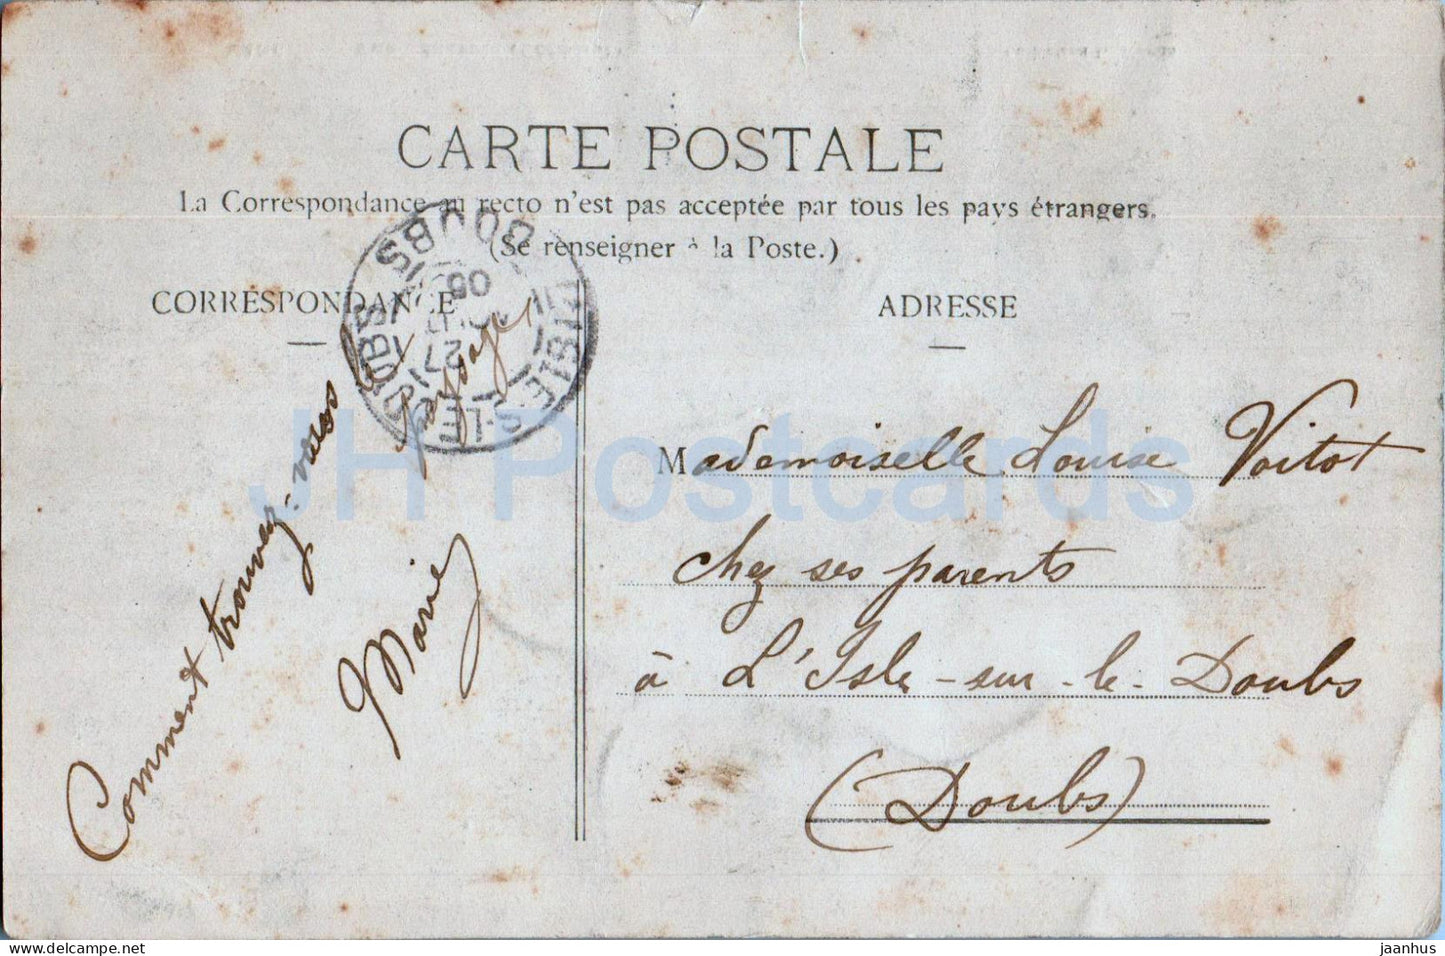 CARTE POSTALE
La Correspondance au recto n'est pas acceptée par tous les pays étrangers.
(Se renseigner à la Poste.)
CORRESPONDANCE
ADRESSE
L'ISLE-S-LE-DOUBS
DOUBS
27
05
Comment trouvez-vous
paysage
Marie
Mademoiselle Louise Voitot
chez ses parents
à L'Isle-sur-le-Doubs
(Doubs)
JH Postcards
jaanhus